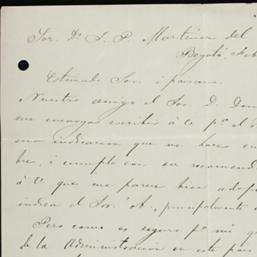 Sor. Dr. J. P. Martinez del
Bogotá Feb
Estimado Sor. i paisano.
Nuestro amigo el Sor. D. Dem
me encarga escribir á U. pa. el
una indicacion que me hace en
bre, i cumplo con su recomend
á U. que me parece bien adop
indica el Sor. A, principalmente
Pero como es seguro pa. mi que
de la Administracion en este pais